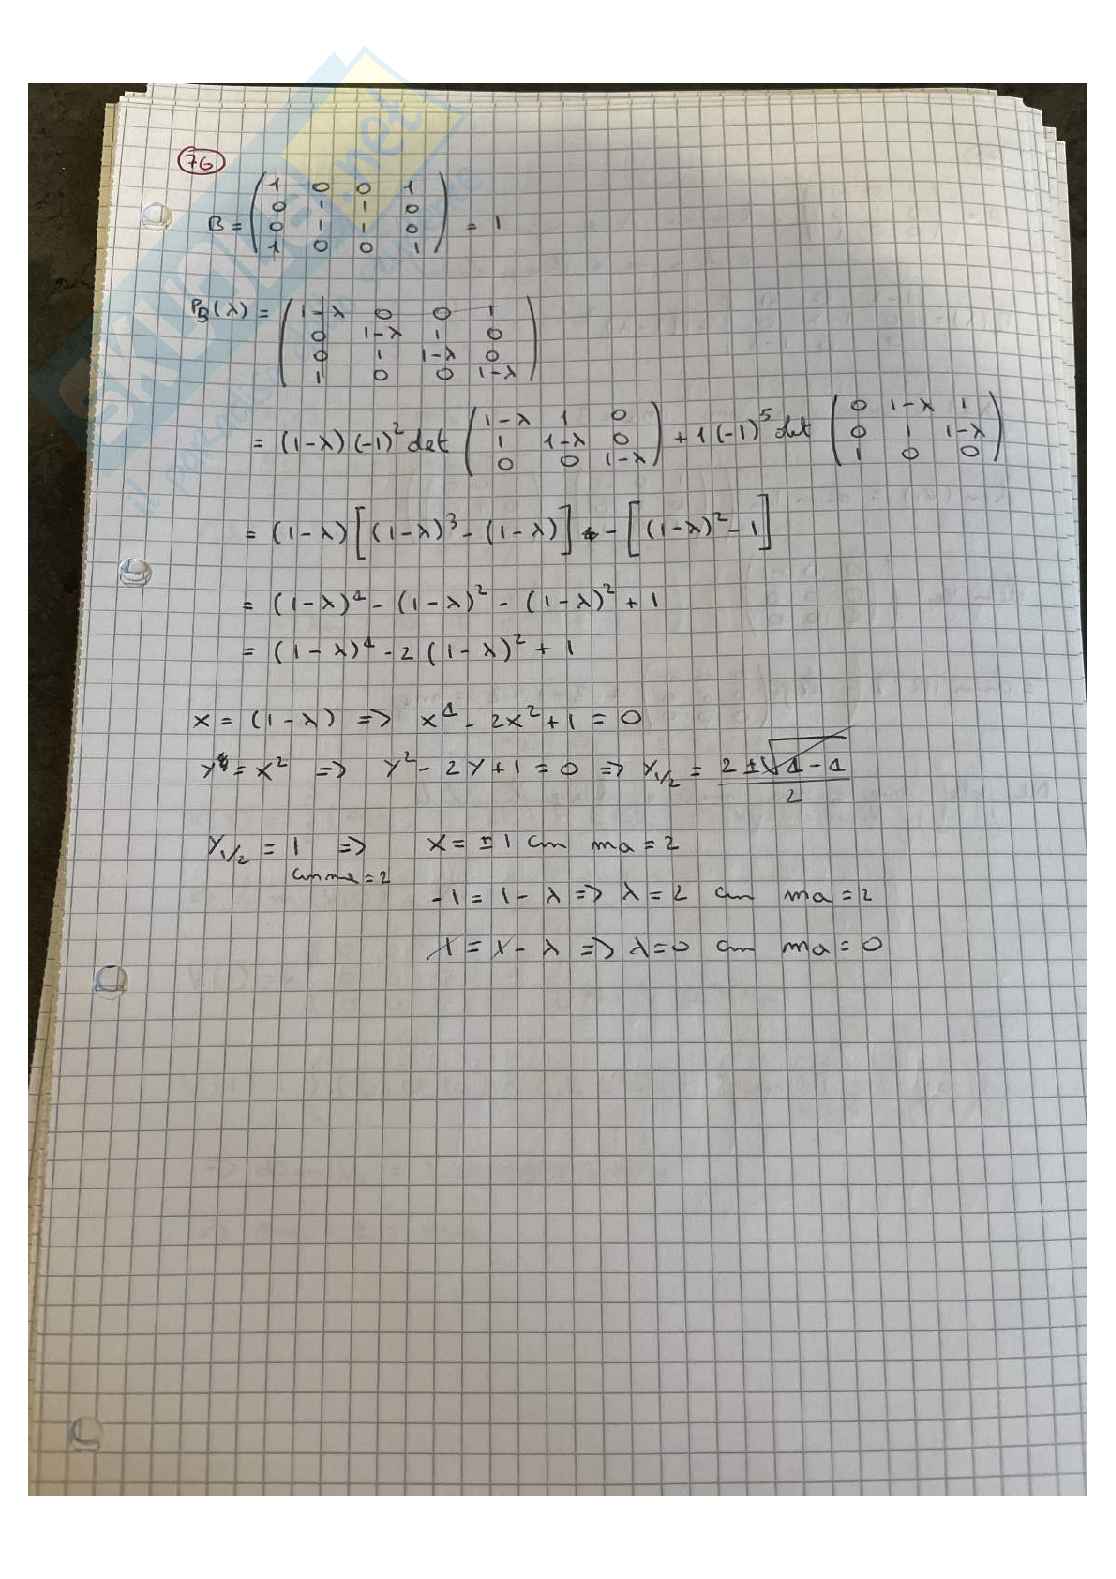 76
B = (1 0 0 1
0 1 1 0
0 1 1 0
1 0 0 1) = 1
PB(λ) = (1-λ 0 0 1
0 1-λ 1 0
0 1 1-λ 0
1 0 0 1-λ)
= (1-λ)(-1)² det (1-λ 1 0
1 1-λ 0
0 0 1-λ) + 1(-1)⁵ det (0 1-λ 1
0 1 1-λ
1 0 0)
= (1-λ)[(1-λ)³ - (1-λ)] - [(1-λ)² - 1]
= (1-λ)⁴ - (1-λ)² - (1-λ)² + 1
= (1-λ)⁴ - 2(1-λ)² + 1
x = (1-λ) => x⁴ - 2x² + 1 = 0
y = x² => y² - 2y + 1 = 0 => y1/2 = 2 ± √4-4 / 2
y1/2 = 1 => x = ±1 con ma = 2
con ma = 2
-1 = 1 - λ => λ = 2 con ma = 2
1 = 1 - λ => λ = 0 con ma = 0
SKUOLA.net